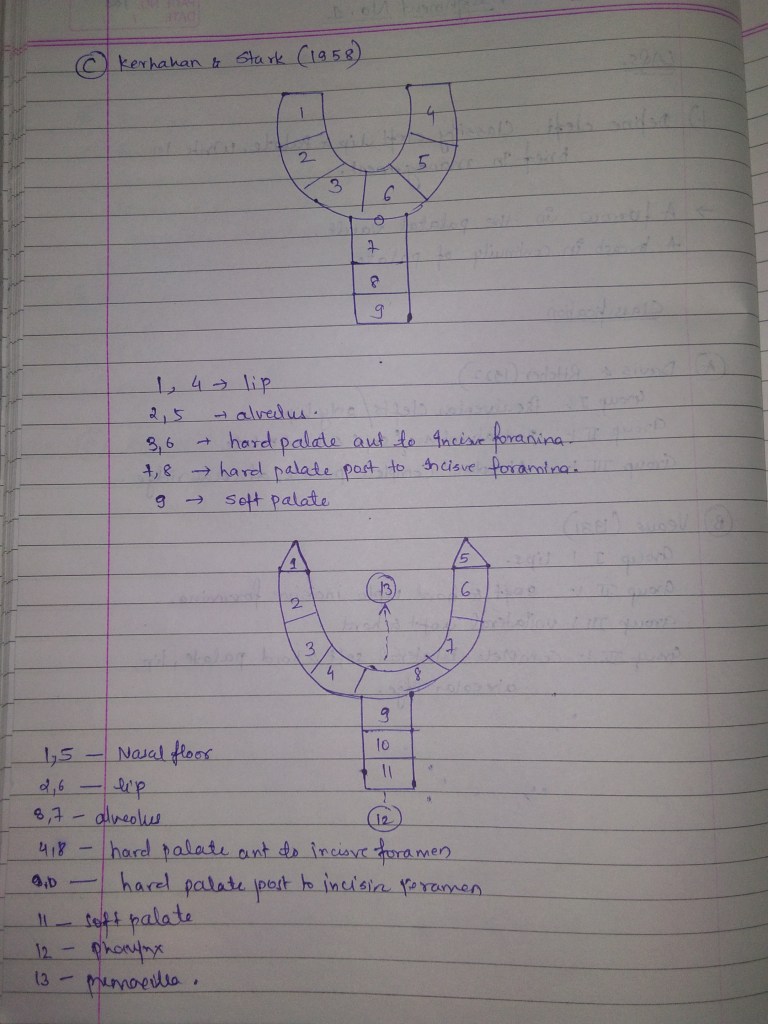 C Kerhahan & Stark (1958)
1 4
2 5
3 6
0
7
8
9
1, 4 → lip
2,5 → alveolus.
3,6 → hard palate ant to Incisve foramina.
7,8 → hard palate post to Incisve foramina.
9 → soft palate
1 5
2 13 6
3 7
4 8
9
10
11
12
1,5 – Nasal floor
2,6 – lip
3,7 – alveolus
4,8 – hard palate ant to incisve foramen
9,10 – hard palate post to incisive foramen
11 – soft palate
12 – pharynx
13 – premaxilla.